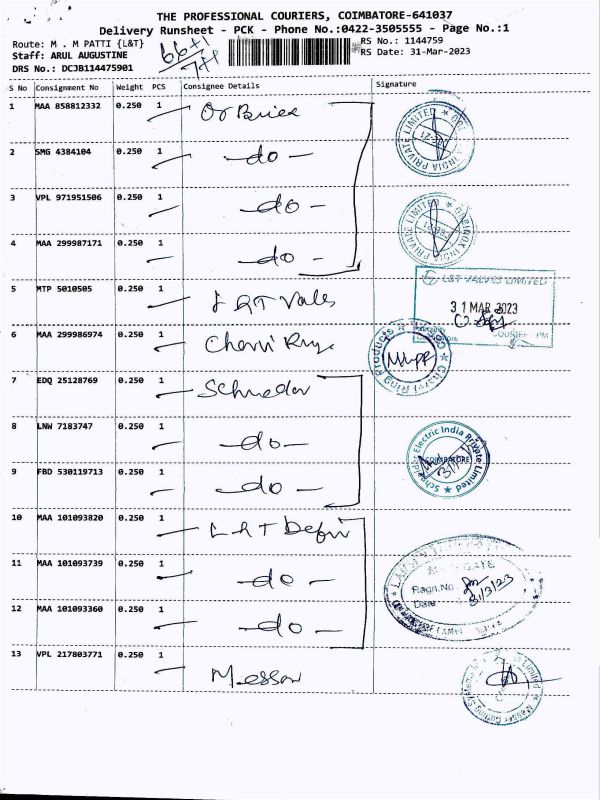 THE PROFESSIONAL COURIERS, COIMBATORE-641037
Delivery Runsheet - PCK - Phone No.:0422-3505555 - Page No.:1
Route: M . M PATTI {L&T}
RS No.: 1144759
Staff: ARUL AUGUSTINE
RS Date: 31-Mar-2023
DRS No.: DCJB114475901
S No Consignment No Weight PCS Consignee Details Signature
1 MAA 858812332 0.250 1
2 SMG 4384104 0.250 1 -do-
3 VPL 971951506 0.250 1 -do-
4 MAA 299987171 0.250 1 -do-
L&T VALVES LIMITED
5 MTP 5010505 0.250 1 L&T Valves
31 MAR 2023
COURIER PM
6 MAA 299986974 0.250 1
Charvi Ring Products
7 EDQ 25128769 0.250 1
8 LNW 7183747 0.250 1 -do-
Schneider Electric India Private Limited
COIMBATORE
9 FBD 530119713 0.250 1 -do-
10 MAA 101093820 0.250 1 L&T
11 MAA 101093739 0.250 1 -do-
GATE
Regn.No
Date 31/3/23
12 MAA 101093360 0.250 1 -do-
13 VPL 217803771 0.250 1